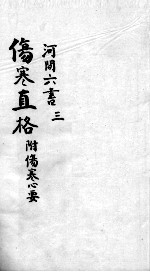 河間六書 三
傷寒直格 附傷寒心要